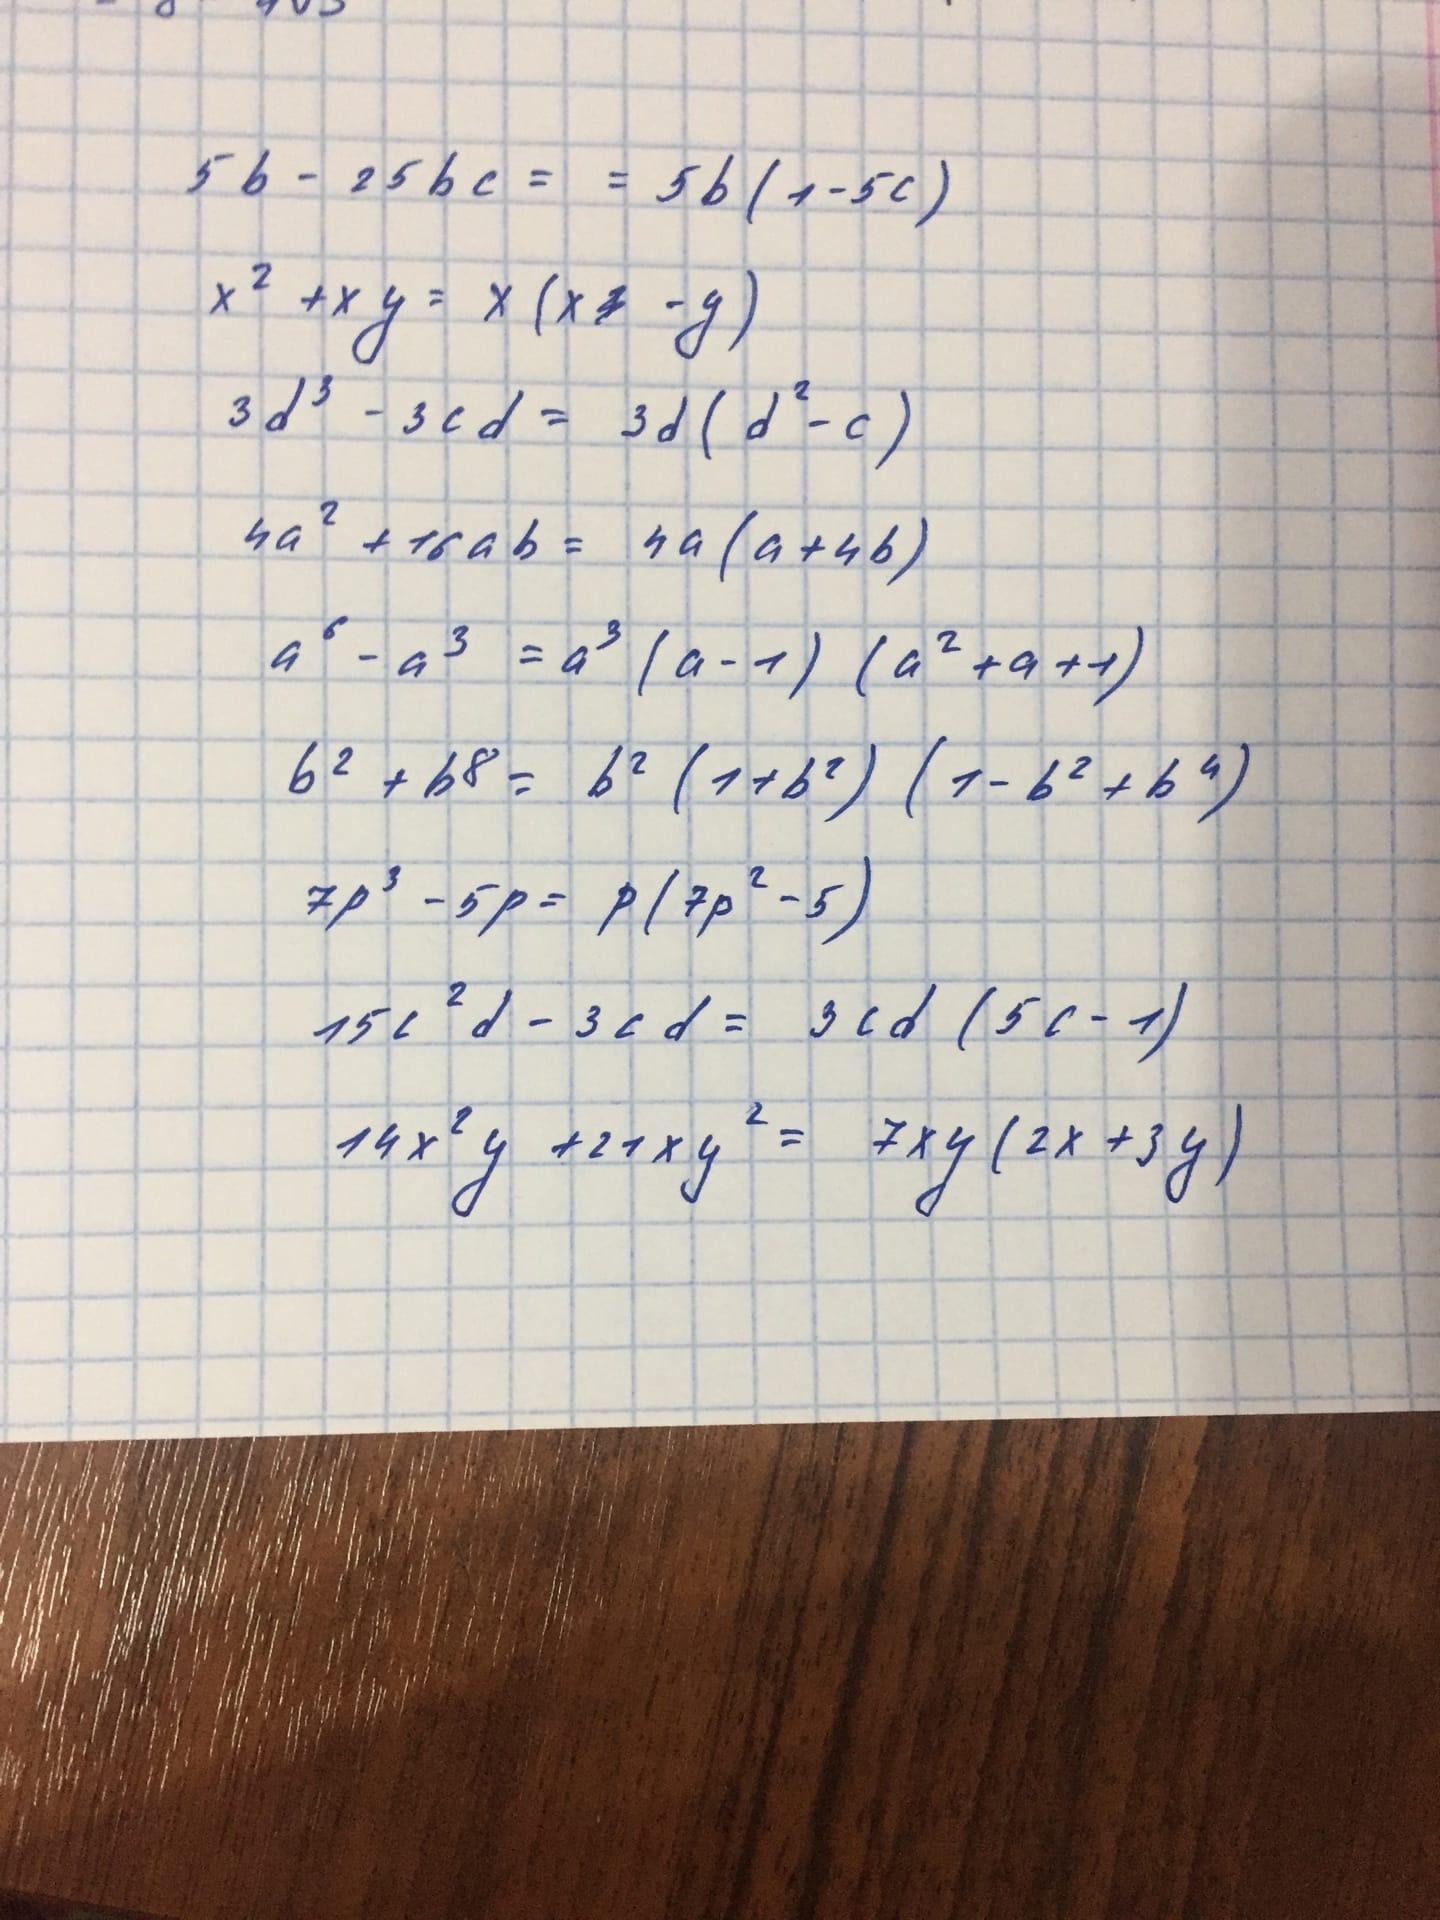 5b - 25bc = = 5b(1-5c)
x² + xy = x(x - y)
3d³ - 3cd = 3d(d² - c)
4a² + 16ab = 4a(a+4b)
a⁶ - a³ = a³(a-1)(a²+a+1)
b² + b⁸ = b²(1+b²)(1-b²+b⁴)
7p³ - 5p = p(7p²-5)
15c²d - 3cd = 3cd(5c-1)
14x²y + 21xy² = 7xy(2x+3y)